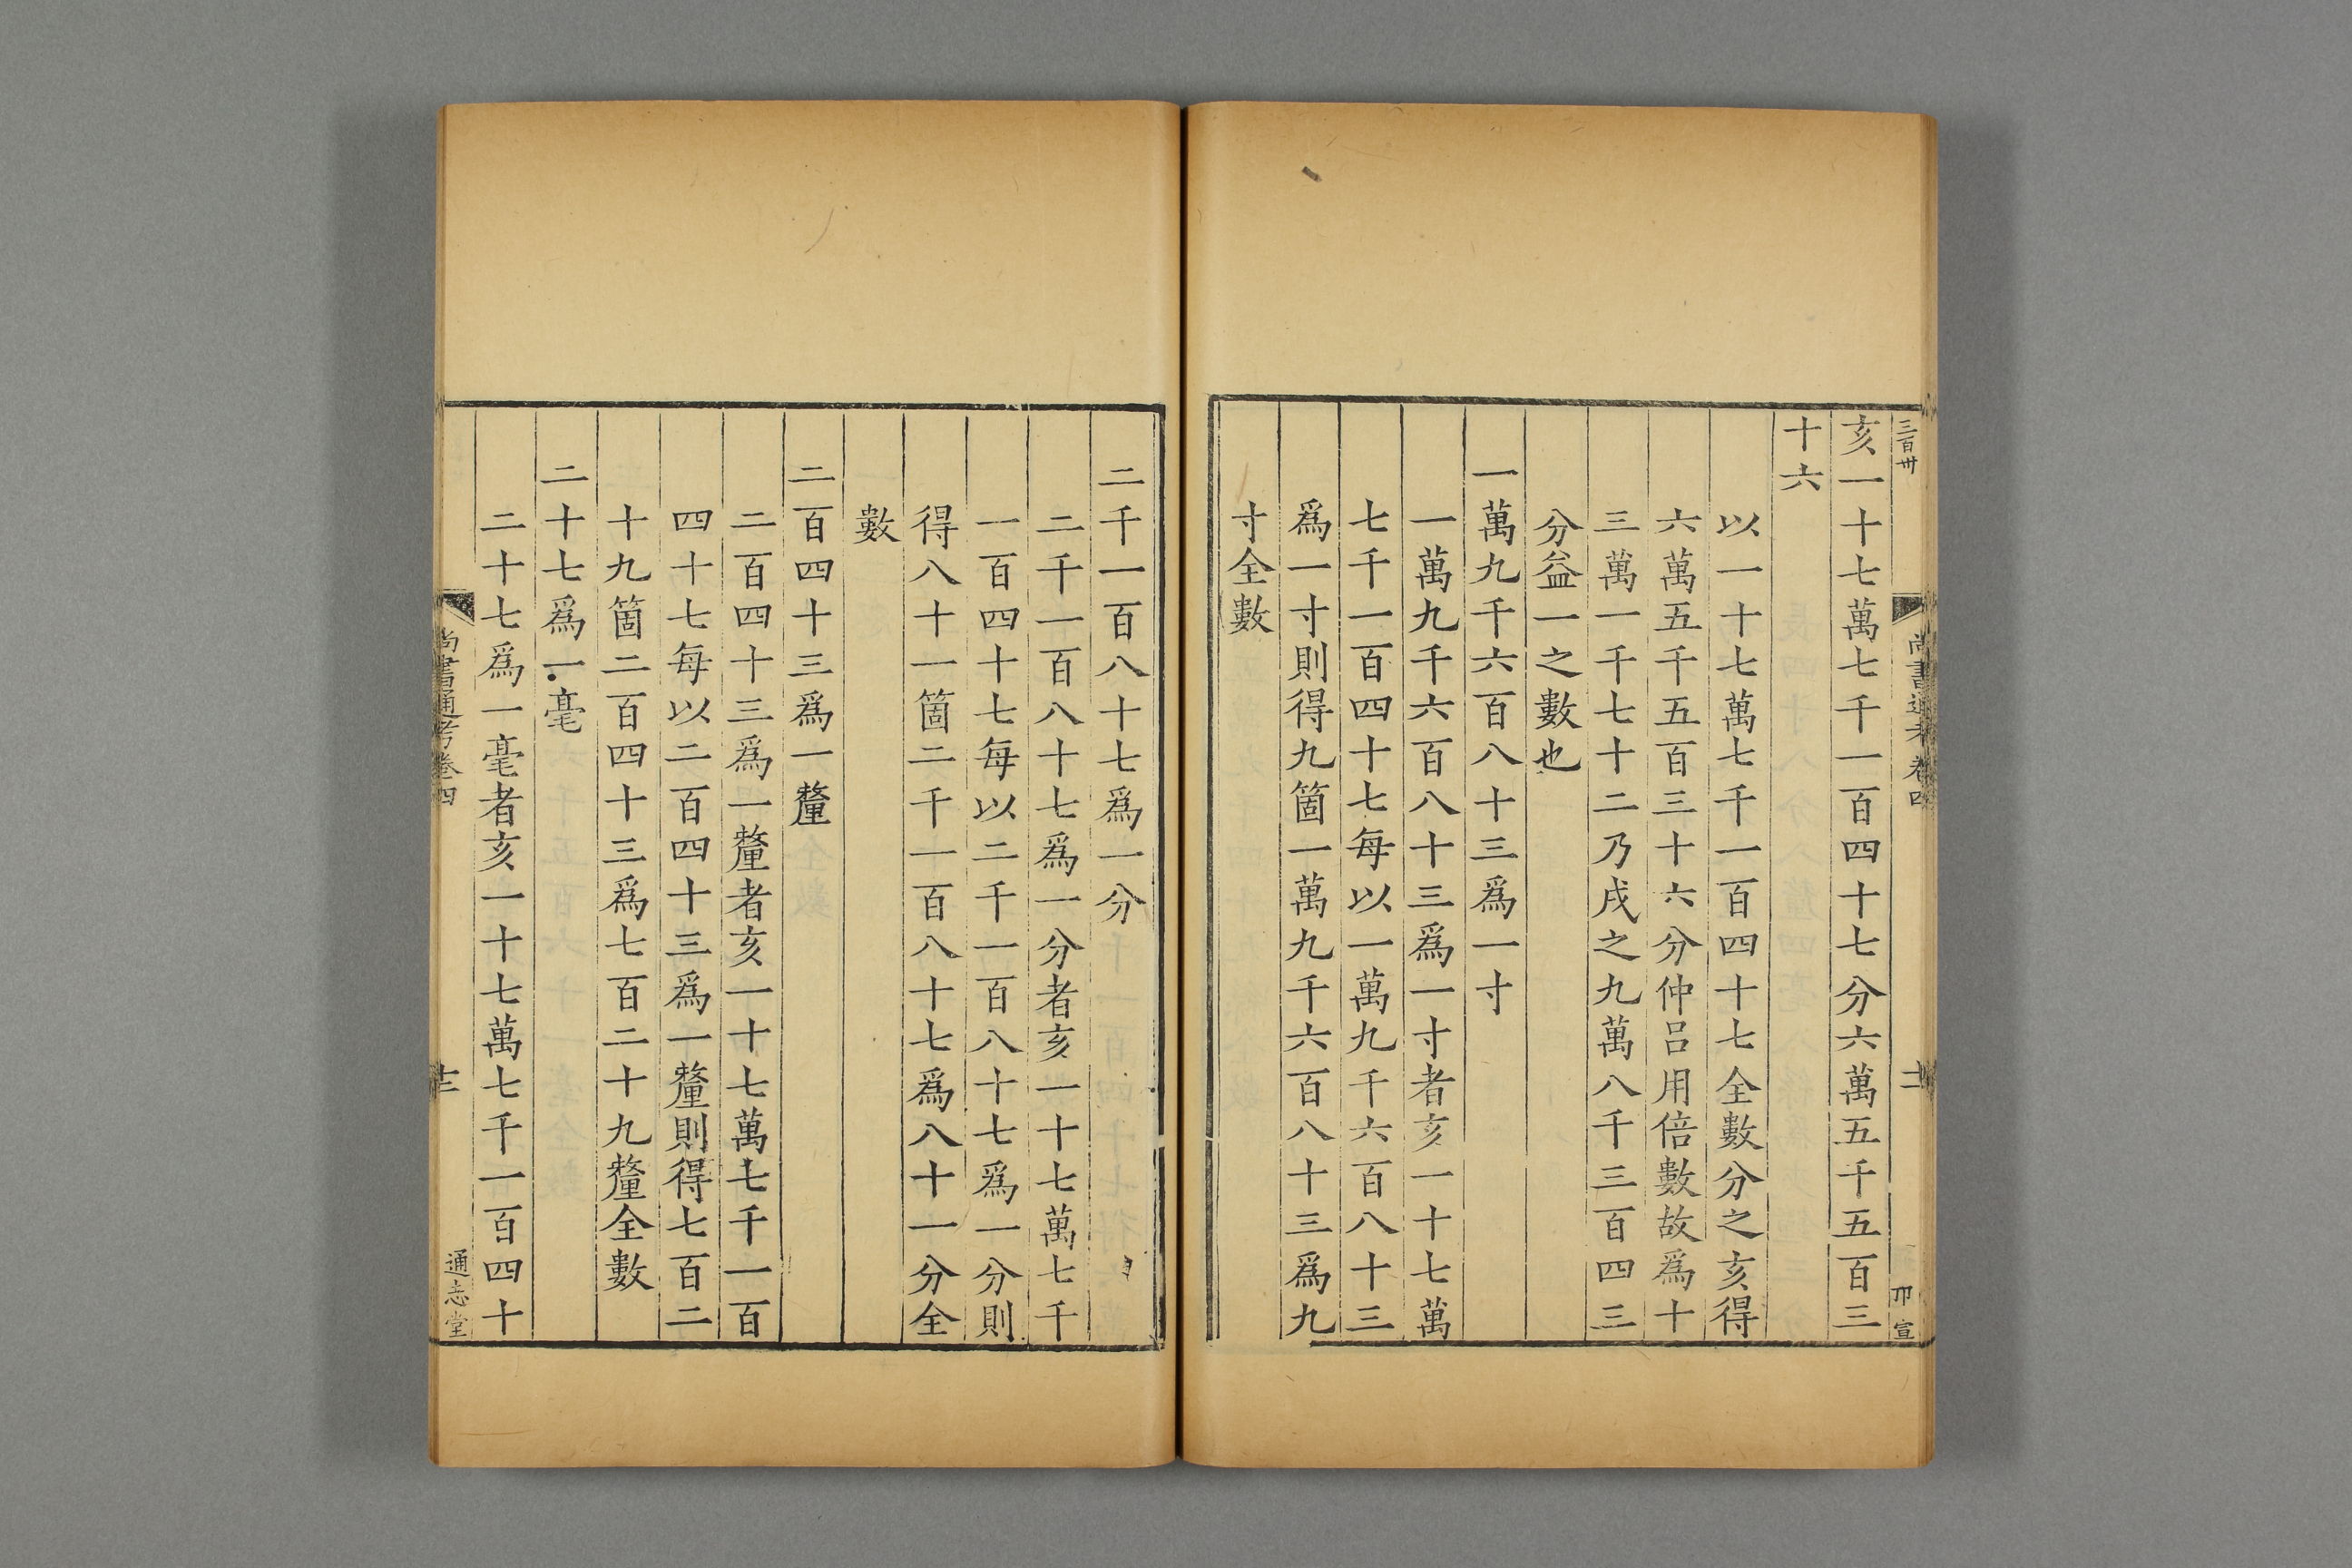 三百卅
尚書通考卷四
亥一十七萬七千一百四十七分六萬五千五百三
十六
以一十七萬七千一百四十七全數分之亥得
六萬五千五百三十六分仲呂用倍數故爲十
三萬一千七十二乃戌之九萬八千三百四三
分益一之數也
一萬九千六百八十三爲一寸
一萬九千六百八十三爲一寸者亥一十七萬
七千一百四十七每以一萬九千六百八十三
爲一寸則得九箇一萬九千六百八十三爲九
寸全數
二千一百八十七爲一分
二千一百八十七爲一分者亥一十七萬七千
一百四十七每以二千一百八十七爲一分則
得八十一箇二千一百八十七爲八十一分全
數
二百四十三爲一釐
二百四十三爲一釐者亥一十七萬七千一百
四十七每以二百四十三爲一釐則得七百二
十九箇二百四十三爲七百二十九釐全數
二十七爲一毫
二十七爲一毫者亥一十七萬七千一百四十
尚書通考卷四
通志堂